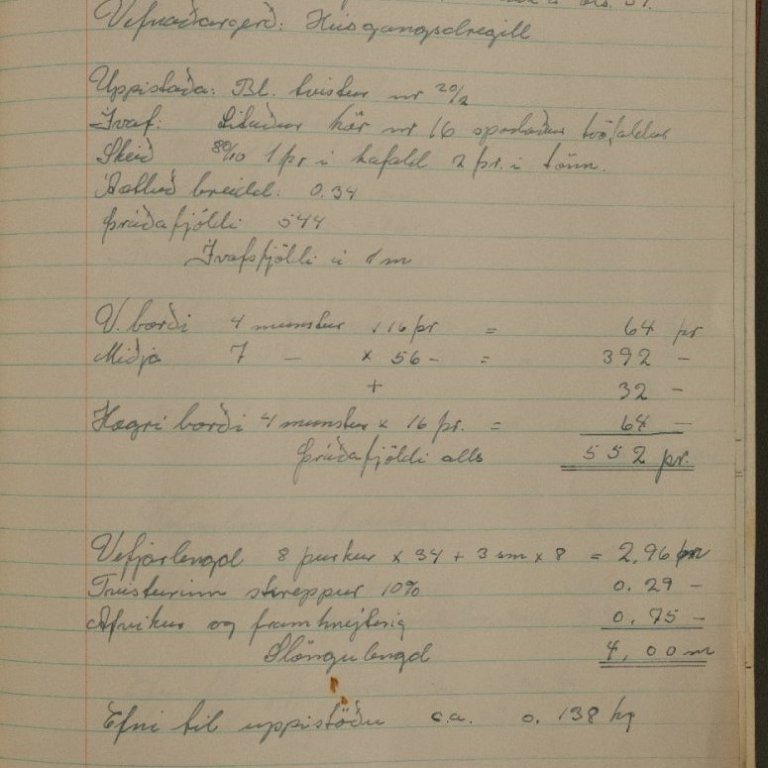 bls. 51.
Vefnaðargerð: Húsgangsdregill
Uppistaða: Bl. tvistur nr 20/2
Ívaf: Litaður hör nr 16 tvöfaldur
Skeið 80/10 1 þr í hafald 2 þr. í tönn.
breidd: 0.34
Þráðafjöldi 544
Ívafsfjöldi á 1 m
V. borði 4 munstur x 16 þr = 64 þr
Miðja 7 — x 56 - = 392 -
+ 32 -
Hægri borði 4 munstur x 16 þr. = 64 -
Þráðafjöldi alls 552 þr.
Vefjarlengd 8 þurkur x 34 + 3 cm x 8 = 2,96 m
Tvisturinn streppur 10% 0.29 -
Afvikur og framhnýting 0.75 -
Slöngulengd 4,00 m
Efni til uppistöðu c.a. 0.138 kg